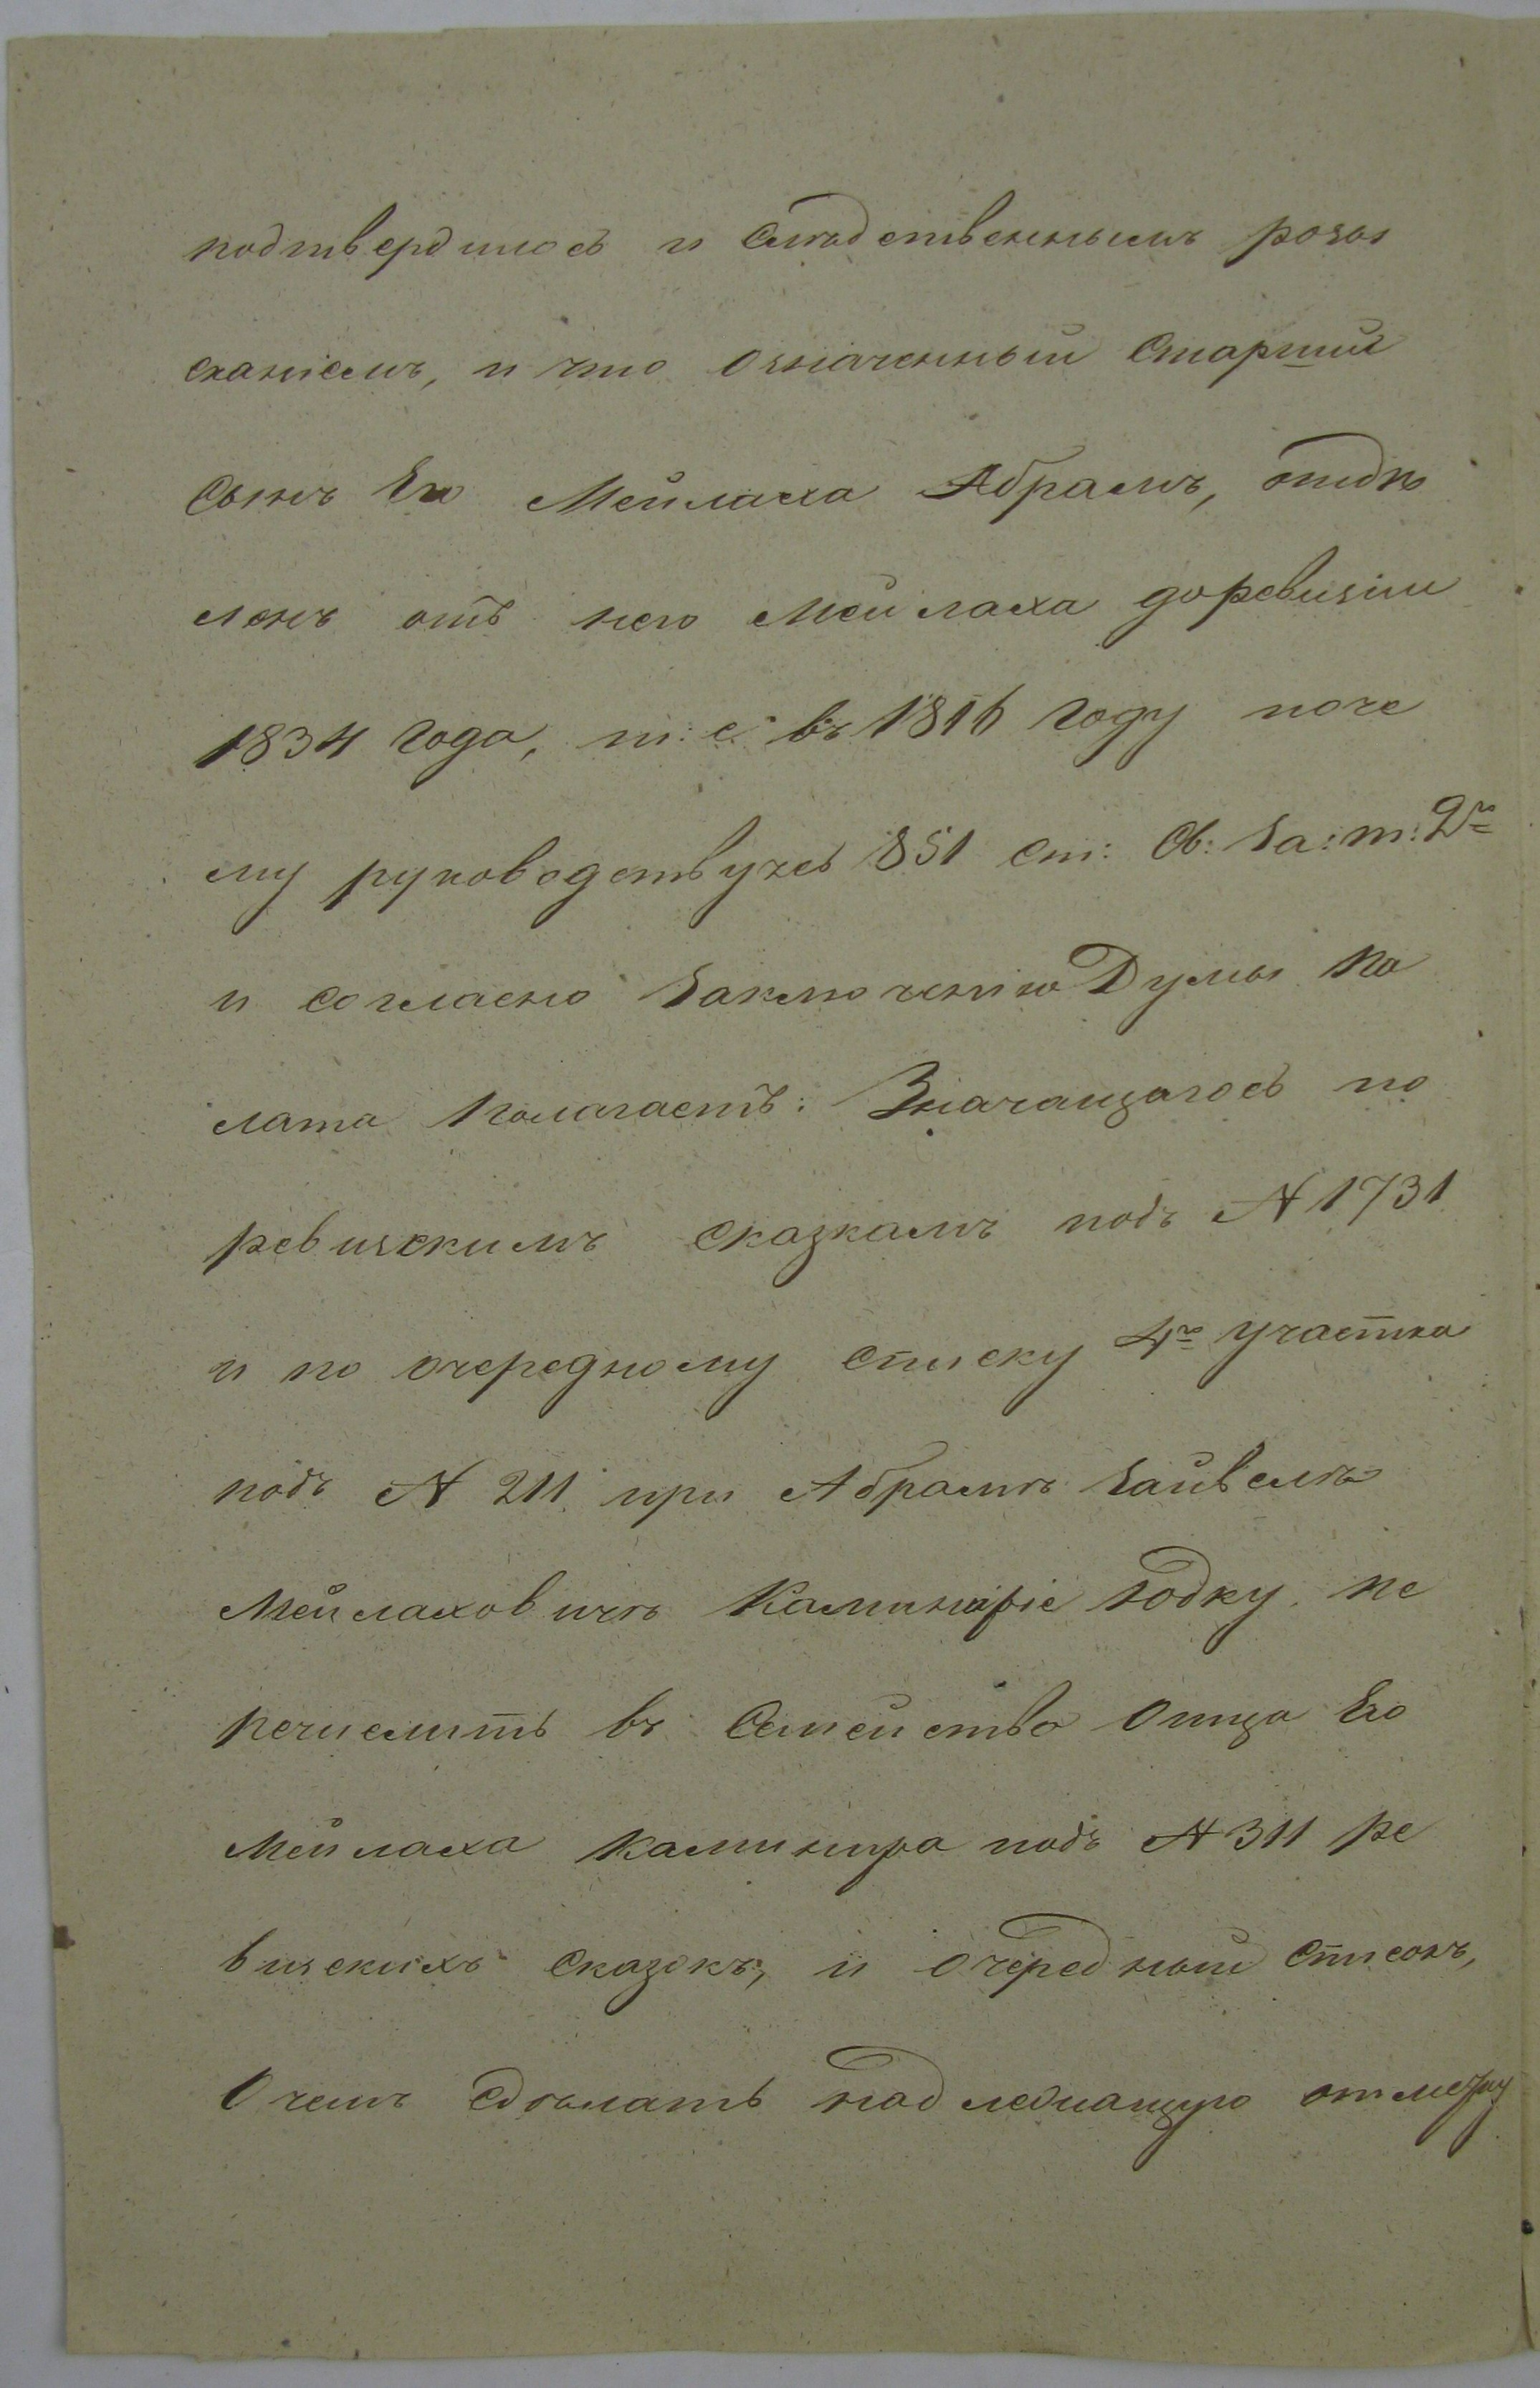 подтвердилось и Следственнымъ розы
сканіемъ, и что означенный Старшій
Сынъ Его Мейлаха Абрамъ, отдѣ
ленъ отъ него Мейлаха доревизіи
1834 года, т: е: въ 1816 году поче
му руководствуясь 851 ст: Св: За: т: 2го
и согласно Заключенію Думы Па
лата Полагаетъ: Значащагось по
ревизскимъ сказкамъ подъ № 1731
и по очередному списку 4го участка
подъ № 211 при Абрамѣ Зайвелѣ
Мейлаховичѣ годку пе
речислить въ Семейство Отца Его
Мейлаха Каминира подъ № 311 ре
визскихъ Сказокъ, и очередный списокъ,
О чемъ сдѣлать надлежащую отметку